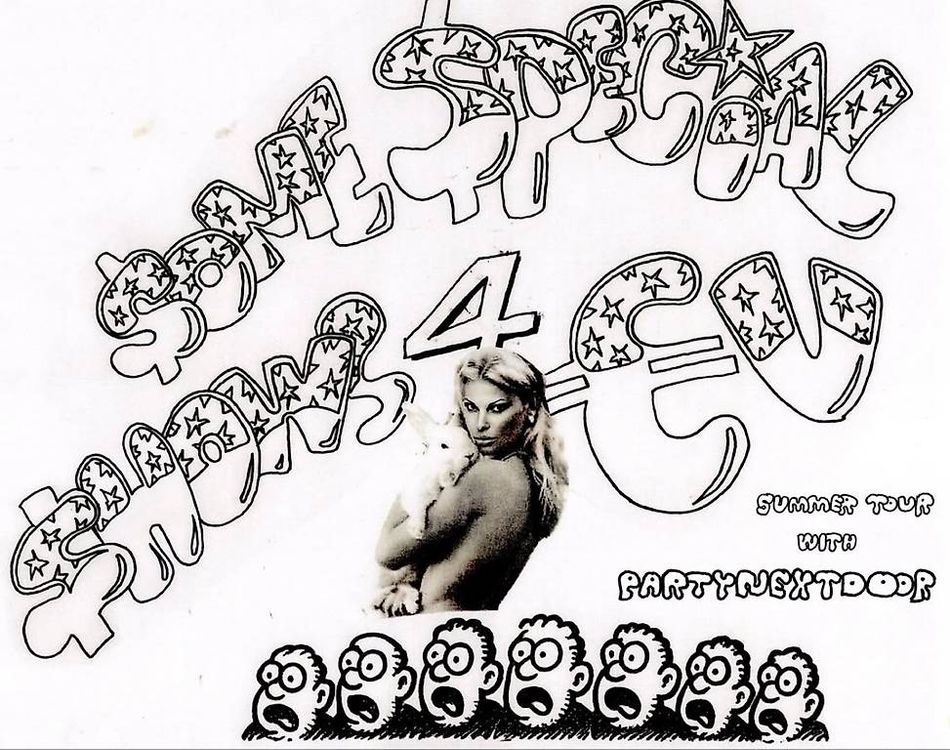 $OME $PECiAL
$HOWS 4 €U
SUMMER TOUR
WITH
PARTYNEXTDOOR